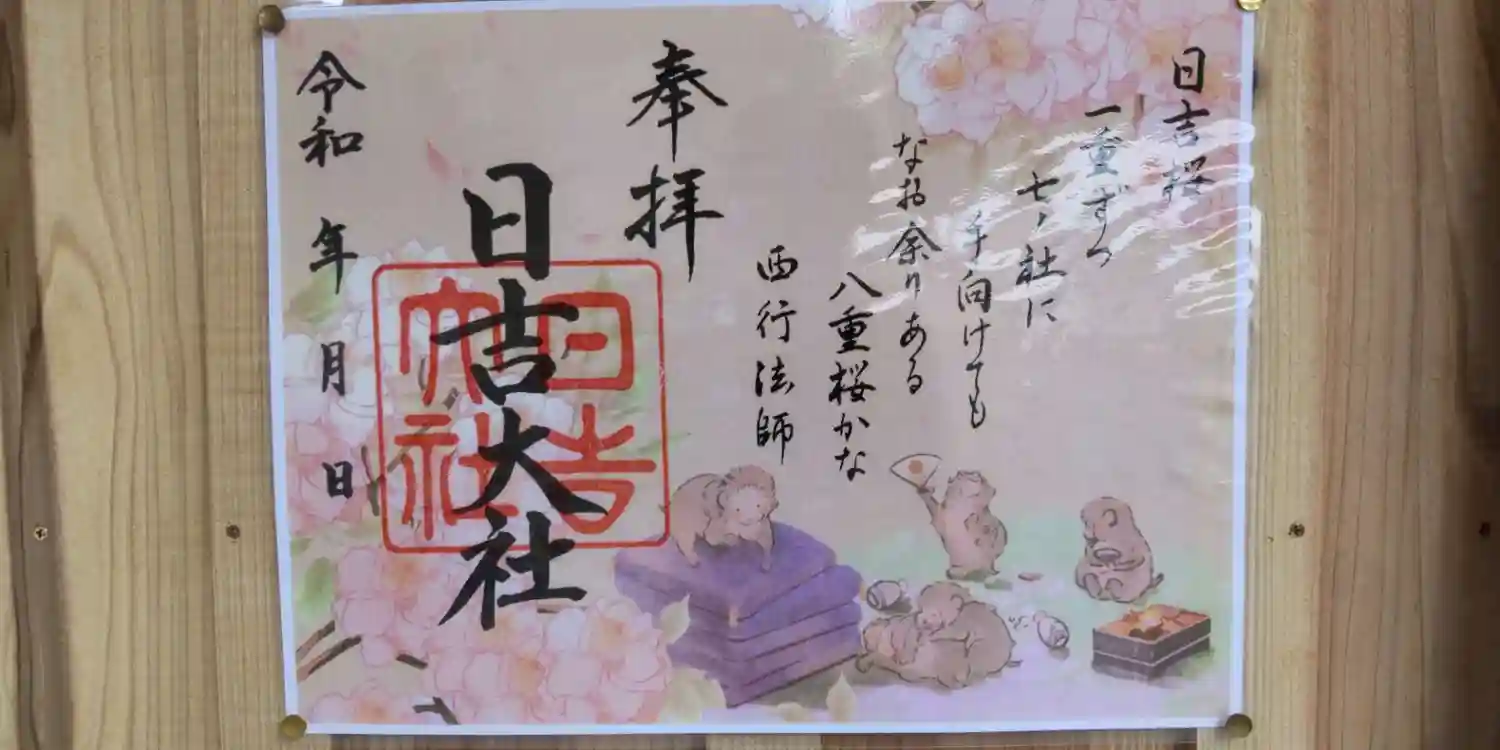 日吉桜
一重ずつ
七ノ社に
手向けても
なお余りある
八重桜かな
西行法師
奉拝
日吉大社
日吉
大社
令和 年 月 日